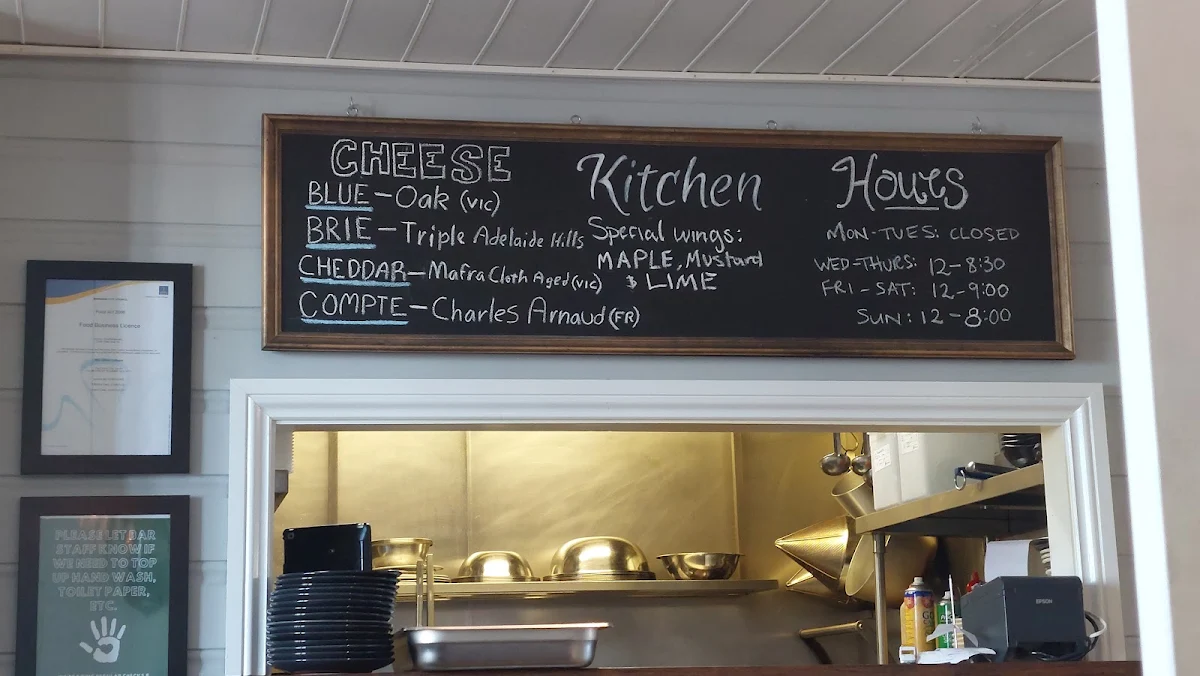 CHEESE
BLUE - Oak (VIC)
BRIE - Triple Adelaide Hills
CHEDDAR - Mafra Cloth Aged (VIC)
COMPTE - Charles Arnaud (FR)
Kitchen
Special wings:
MAPLE, Mustard
& LIME
Hours
MON-TUES: CLOSED
WED-THURS: 12-8:30
FRI-SAT: 12-9:00
SUN: 12-8:00
Food Business Licence
PLEASE LET BAR
STAFF KNOW IF
WE NEED TO TOP
UP HAND WASH,
TOILET PAPER,
ETC.
EPSON